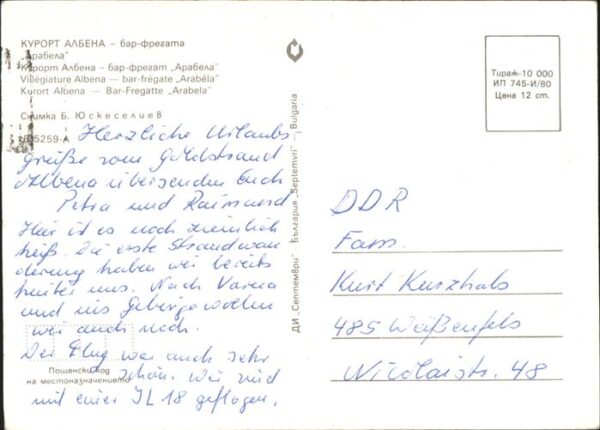 КУРОРТ АЛБЕНА – бар-фрегата
„Арабела"
Курорт Албена – бар-фрегат „Арабела"
Villégiature Albena — bar-frégate „Arabéla"
Kurort Albena — Bar-Fregatte „Arabela"
Снимка Б. Юскеселиев
5259-А
Herzliche Urlaubs
grüße vom Goldstrand
Albena übersenden Euch
Petra und Raimund.
Hier ist es noch ziemlich
heiß. Die erste Strandwan
derung haben wir bereits
hinter uns. Nach Varna
und ins Gebirge wollen
wir auch noch.
Der Flug war auch sehr
schön. Wir sind
mit einer IL 18 geflogen.
Пощенски код
на местоназначението
ДИ „Септември" България · „Septemvri" — Bulgaria
Тираж-10 000
ИП 745-И/80
Цена 12 ст.
DDR
Fam.
Kurt Kurzhals
485 Weißenfels
Nicolaistr. 48